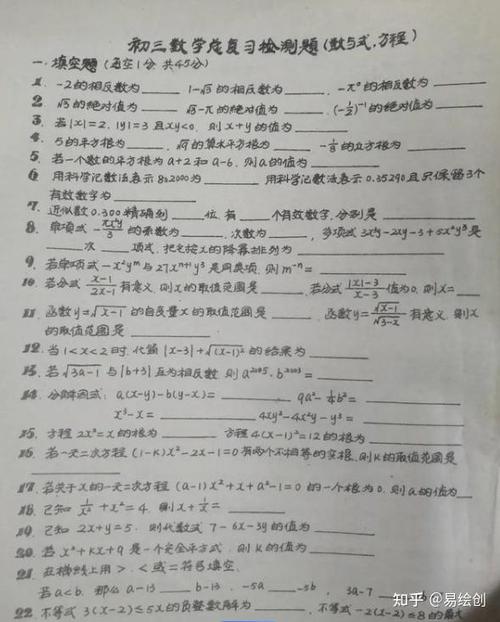 初三数学总复习检测题(数与式,方程)
一.填空题(每空1分 共45分)
1. -2的相反数为____ 1-√5的相反数为____, -π⁰的相反数为____
2. √3的绝对值为____ √3-π的绝对值为____, (-1/2)⁻¹的绝对值为____
3. 若|x|=2, |y|=3 且xy<0, 则x+y的值为____
4. 5的平方根为____, 的算术平方根为____ -1/8的立方根为____
5. 若一个数的平方根为a+2和a-6, 则a的值为____
6. 用科学记数法表示802000为____ 用科学记数法表示0.35290且只保留3个
有效数字为____
7. 近似数0.300精确到____位, 有____个有效数字, 分别是____
8. 单项式 的系数为____, 次数为____, 多项式
____次____项式, 把它按x的降幂排列为____
9. 若单项式-x²yᵐ与27xⁿ⁺¹y³是同类项, 则m⁻ⁿ=____
10. 若分式 (x-1)/(2x-1) 有意义, 则x的取值范围是____, 若分式 (|x|-3)/(x-3) 值为0, 则x=____
11. 函数y=√(x-1) 的自变量x的取值范围是____, 函数y=√(x-1)/√(3-x) 有意义, 则x
的取值范围是____
12. 当1<x<2时, 代数|x-3|+√(x-1)²的结果为____
13. 若√(3a-1)与|b+3|互为相反数, 则a²⁰⁰⁵·b²⁰⁰³=____
14. 分解因式: a(x-y)-b(y-x)=____ 9a²-¼b²=____
x³-x=____ 4xy²-4x²y-y³=____
15. 方程2x²=x的根为____ 方程4(x-1)²=12的根为____
16. 若一元二次方程(1-k)x²-2x-1=0有两个不相等的实根, 则k的取值范围是
____
17. 若关于x的一元二次方程(a-1)x²+x+a²-1=0的一个根为0, 则a的值为____
18. 已知1/x²+x²=4, 则x+1/x=____
19. 已知2x+y=5, 则代数式7-6x-3y的值为____
20. 若x²+kx+9是一个完全平方式, 则k的值为____
21. 在横线上用>、<或=符号填空.
若a<b, 那么a-13____b-13, -5a____-5b, 3a-7____
22. 不等式3(x-2)≤5x的负整数解为____, 不等式-2(x-2)=8的
知乎 @易绘创